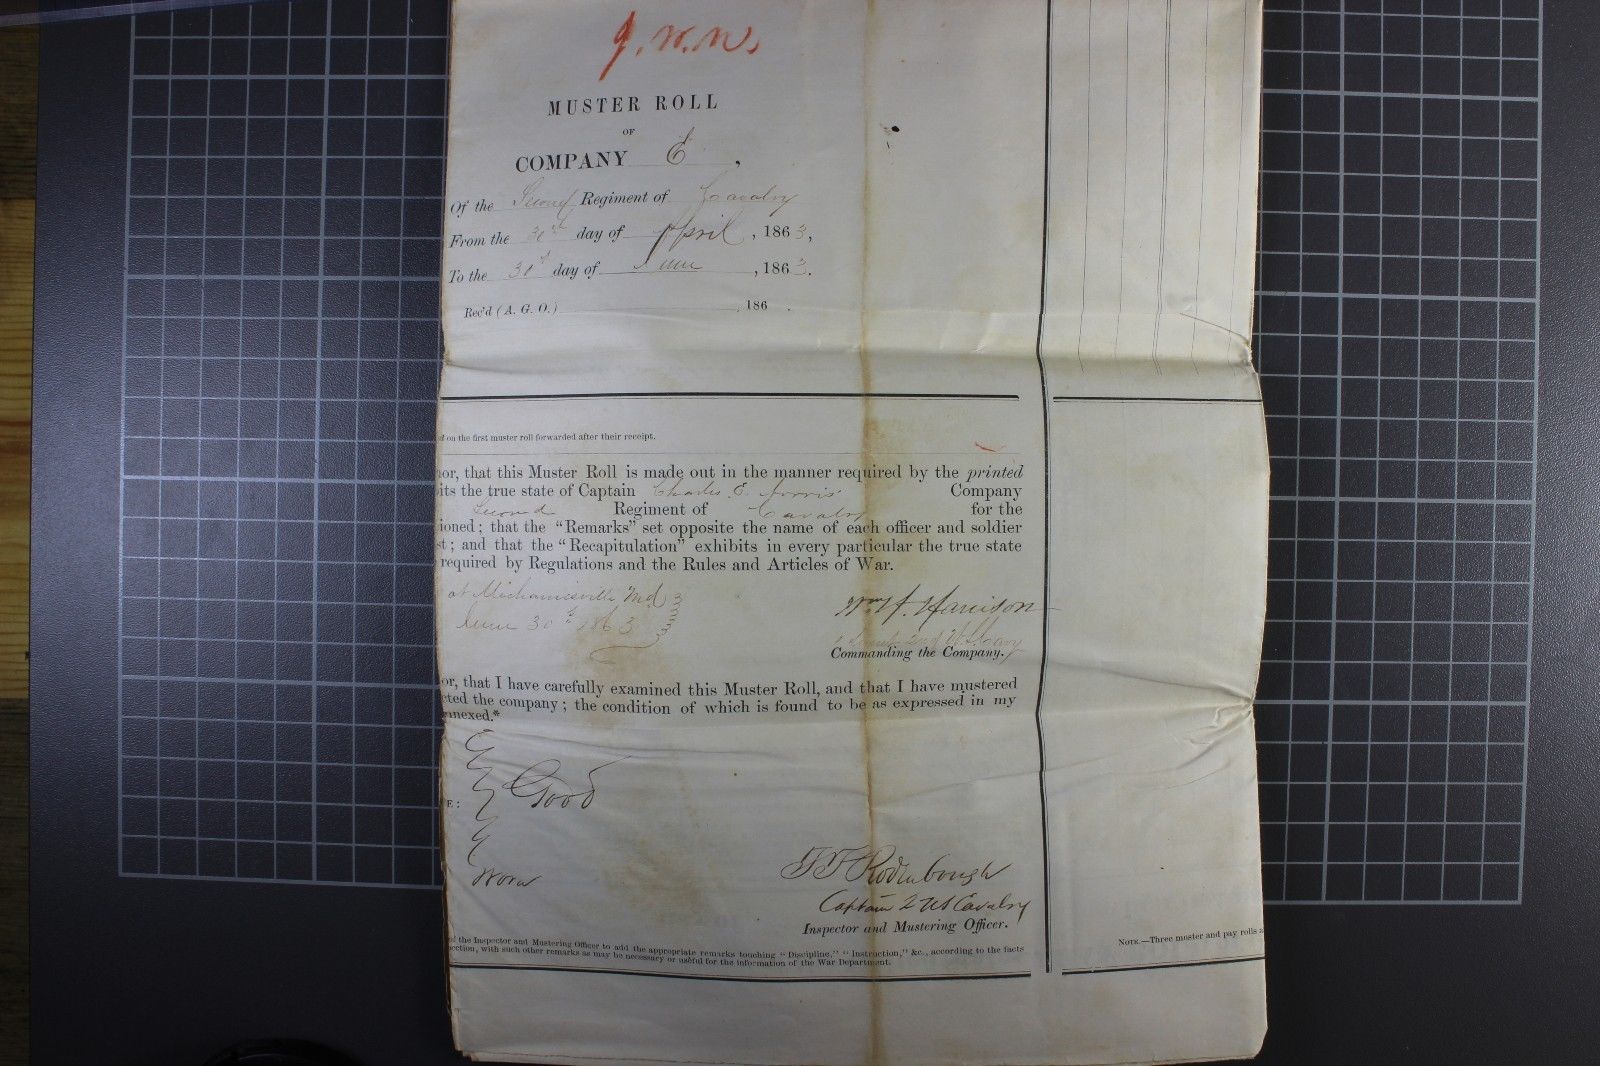 J. W. N.
MUSTER ROLL
OF
COMPANY E,
Of the Second Regiment of Cavalry
From the 30th day of April, 1863,
To the 30th day of June, 1863.
Rec'd (A. G. O.) , 186 .
on the first muster roll forwarded after their receipt.
or, that this Muster Roll is made out in the manner required by the printed
its the true state of Captain Charles E. Norris Company
Second Regiment of Cavalry for the
ioned; that the "Remarks" set opposite the name of each officer and soldier
st; and that the "Recapitulation" exhibits in every particular the true state
required by Regulations and the Rules and Articles of War.
at Mechanicsville, Md
June 30th 1863
Wm H. Harrison
Commanding the Company.
or, that I have carefully examined this Muster Roll, and that I have mustered
cted the company; the condition of which is found to be as expressed in my
nnexed.*
E: Good
Worn
T F Rodenbough
Captain 2 US Cavalry
Inspector and Mustering Officer.
of the Inspector and Mustering Officer to add the appropriate remarks touching "Discipline," "Instruction," &c., according to the facts
ection, with such other remarks as may be necessary or useful for the information of the War Department.
NOTE.—Three muster and pay rolls